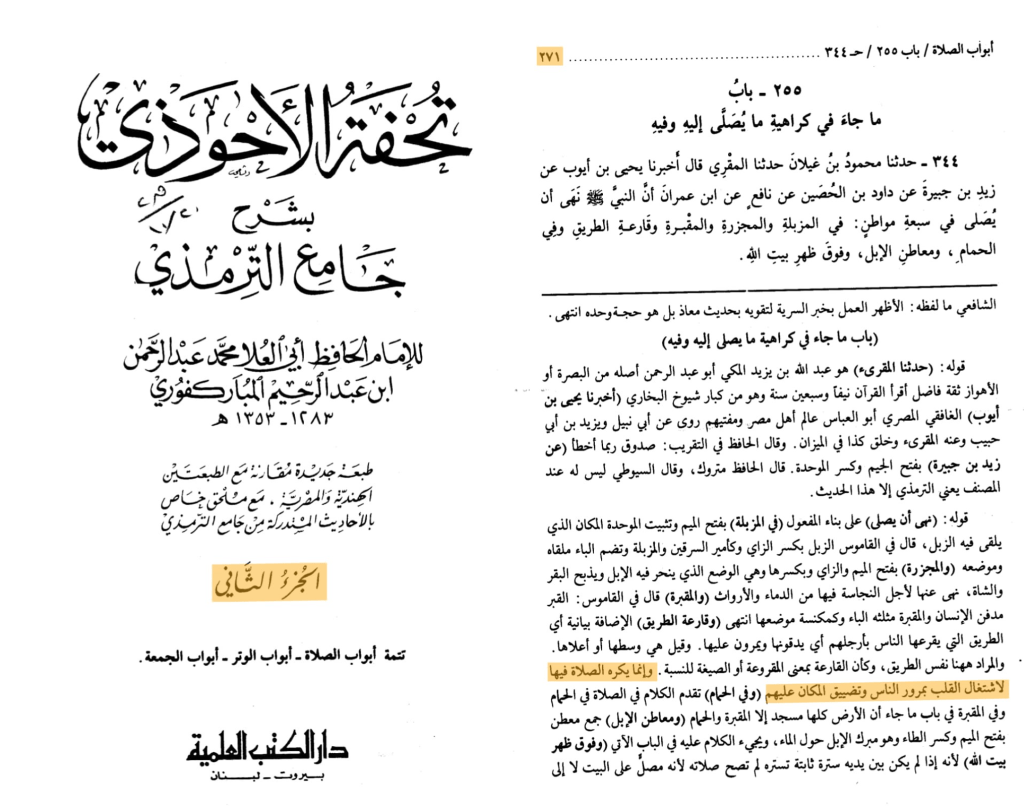 تحفة الأحوذي
بشرح
جامع الترمذي
للإمام الحافظ أبي العلا محمد عبد الرحمن
ابن عبد الرحيم المباركفوري
١٢٨٣ - ١٣٥٣ هـ
طبعة جديدة مقارنة مع الطبعتين
الهندية والمصرية ، مع ملحق خاص
بالأحاديث المستدركة من جامع الترمذي
الجزء الثاني
تتمة أبواب الصلاة - أبواب الوتر - أبواب الجمعة .
دار الكتب العلمية
بيروت - لبنان
أبواب الصلاة / باب ٢٥٥ / حـ ٣٤٤ ........................................ ٢٧١
٢٥٥ - بابُ
ما جاءَ في كراهيةِ ما يُصَلَّى إليهِ وفيهِ
٣٤٤ - حدثنا محمودُ بنُ غيلانَ حدثنا المقْري قال أَخبرنا يحيى بن أيوب عن
زيدِ بن جبيرةَ عن داود بن الحُصَين عن نافعٍ عن ابن عمرانَ أنَّ النبيَّ ﷺ نَهَى أن
يُصَلى في سبعةِ مواطنٍ: في المزبلةِ والمجزرةِ والمقبْرةِ وقَارعةِ الطريقِ وفِي
الحمامِ ، ومعاطنِ الإبل، وفوقَ ظهرِ بيتِ اللهِ.
الشافعي ما لفظه: الأظهر العمل بخبر السرية لتقويه بحديث معاذ بل هو حجة وحده انتهى .
(باب ما جاء في كراهية ما يصلى إليه وفيه)
قوله: (حدثنا المقرىء) هو عبد الله بن يزيد المكي أبو عبد الرحمن أصله من البصرة أو
الأهواز ثقة فاضل أقرأ القرآن نيفاً وسبعين سنة وهو من كبار شيوخ البخاري (أخبرنا يحيى بن
أيوب) الغافقي المصري أبو العباس عالم أهل مصر ومفتيهم روى عن أبي نبيل ويزيد بن أبي
حبيب وعنه المقرىء وخلق كذا في الميزان. وقال الحافظ في التقريب: صدوق ربما أخطأ (عن
زيد بن جبيرة) بفتح الجيم وكسر الموحدة. قال الحافظ متروك، وقال السيوطي ليس له عند
المصنف يعني الترمذي إلا هذا الحديث.
قوله: (نهى أن يصلى) على بناء المفعول (في المزبلة) بفتح الميم وتثبيت الموحدة المكان الذي
يلقى فيه الزبل، قال في القاموس الزبل بكسر الزاي وكأمير السرقين والمزبلة وتضم الباء ملقاه
وموضعه (والمجزرة) بفتح الميم والزاي وبكسرها وهي الوضع الذي ينحر فيه الإبل ويذبح البقر
والشاة، نهى عنها لأجل النجاسة فيها من الدماء والأرواث (والمقبرة) قال في القاموس: القبر
مدفن الإنسان والمقبرة مثلثه الباء وكمكنسة موضعها انتهى (وقارعة الطريق) الإضافة بيانية أي
الطريق التي يقرعها الناس بأرجلهم أي يدقونها ويمرون عليها. وقيل هي وسطها أو أعلاها.
والمراد ههنا نفس الطريق، وكأن القارعة بمعنى المقروعة أو الصيغة للنسبة . وإنما يكره الصلاة فيها
لاشتغال القلب بمرور الناس وتضييق المكان عليهم (وفي الحمام) تقدم الكلام في الصلاة في الحمام
وفي المقبرة في باب ما جاء أن الأرض كلها مسجد إلا المقبرة والحمام (ومعاطن الإبل) جمع معطن
بفتح الميم وكسر الطاء وهو مبرك الإبل حول الماء، ويجيء الكلام عليه في الباب الآتي (وفوق ظهر
بيت الله) لأنه إذا لم يكن بين يديه سترة ثابتة تستره لم تصح صلاته لأنه مصلٍّ على البيت لا إلى